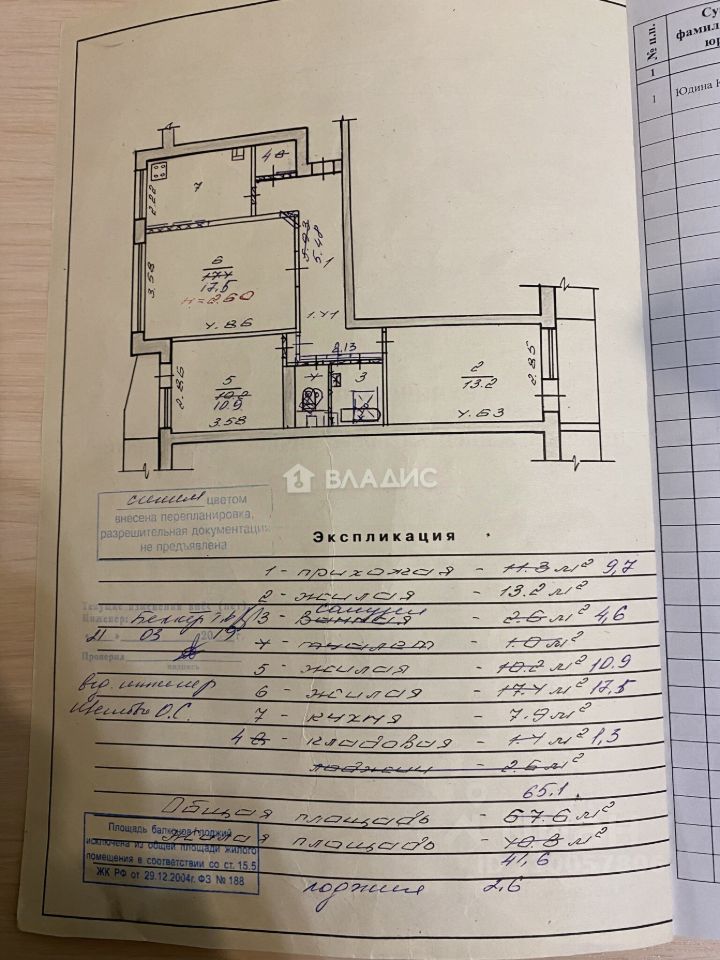 № п.п.
Су
фамил
юр
1
1 Юдина К
48
7
2.22
5.93
5.48
1
6
17.1
17.5
н=2.60
3.58
4.86
1.41
2.13
5
10.2
10.9
2.85
3.58
4
3
2
13.2
2.85
4.63
ВЛАДИС
синим цветом
внесена перепланировка,
разрешительная документация
не предъявлена
Экспликация
1 - прихожая - 11.3 м² 9,7
2 - жилая - 13.2 м²
3 - Ванная санузел - 2.6 м² 4,6
4 - туалет - 1.0 м²
5 - жилая - 10.2 м² 10.9
6 - жилая - 17.1 м² 17,5
7 - кухня - 7.9 м²
4 8 - кладовая - 1.4 м² 1,3
лоджии - 2.6 м²
Текущие изменения внес (нет)
Инженер: Беккер
21 » 03 2019 г.
Проверил
подпись
вед. инженер
О.С.
65,1
Общая площадь - 67.6 м²
Жилая площадь - 40.8 м²
41,6
лоджия 2,6
Площадь балконов (лоджий)
исключена из общей площади жилого
помещения в соответствии со ст. 15.5
ЖК РФ от 29.12.2004г. ФЗ № 188